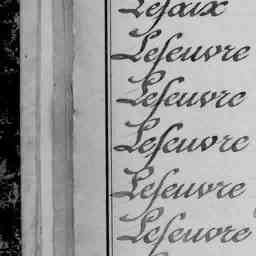 Lefaix
Lefeuvre
Lefeuvre
Lefeuvre
Lefeuvre
Lefeuvre